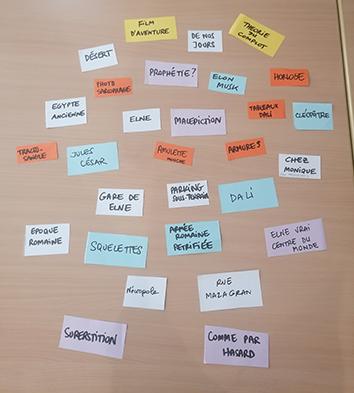 FILM
D'AVENTURE
DE NOS
JOURS
THEORIE
DU
COMPLOT
DÉSERT
PROPHÉTIE?
PHOTO
SARCOPHAGE
ELON
MUSK
HORLOGE
EGYPTE
ANCIENNE
ELNE
MALEDICTION
TABLEAUX
DALI
CLÉOPÂTRE
TRACES
SANG
JULES
CÉSAR
AMULETTE
MOUCHE
ARMURES
CHEZ
MONIQUE
GARE DE
ELNE
PARKING
SOUS-TERRAIN
DALI
EPOQUE
ROMAINE
SQUELETTES
ARMÉE
ROMAINE
PETRIFIÉE
ELNE VRAI
CENTRE DU
MONDE
Nécropole
RUE
MAZAGRAN
SUPERSTITION
COMME PAR
HASARD